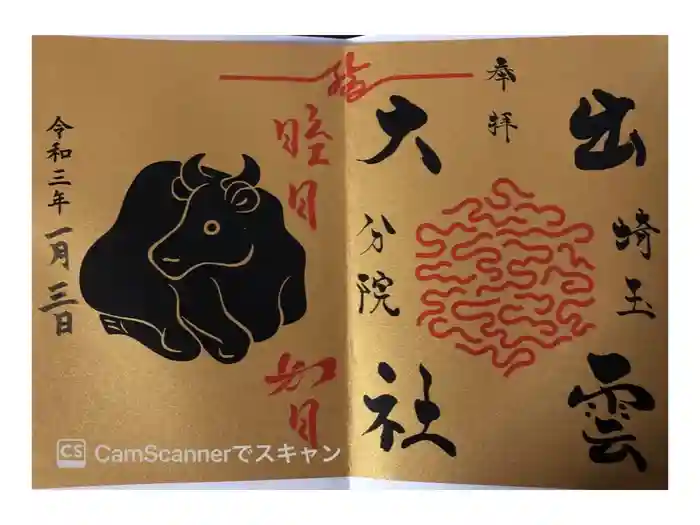 出雲
埼玉
奉拝
大社
分院
結
睦月
如月
令和三年一月三日
CS CamScannerでスキャン